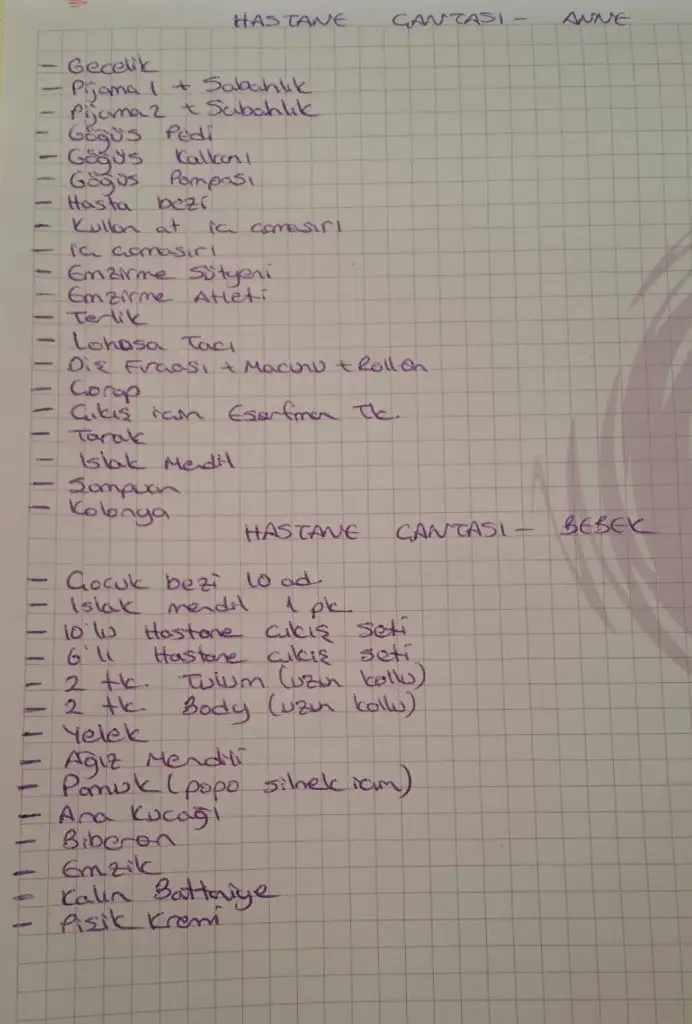 HASTANE ÇANTASI - ANNE
- Gecelik
- Pijama 1 + Sabahlık
- Pijama 2 + Sabahlık
- Göğüs Pedi
- Göğüs Kalkanı
- Göğüs Pompası
- Hasta bezi
- Kullan at iç çamaşırı
- iç çamaşırı
- Emzirme Sütyeni
- Emzirme Atleti
- Terlik
- Lohusa Tacı
- Diş Fırçası + Macunu + Rollon
- Çorap
- Çıkış için Eşarfman Tk.
- Tarak
- Islak Mendil
- Şampuan
- Kolonya
HASTANE ÇANTASI - BEBEK
- Çocuk bezi 10 ad.
- Islak mendil 1 pk.
- 10'lu Hastane çıkış seti
- 6'lı Hastane çıkış seti
- 2 tk. Tulum (uzun kollu)
- 2 tk. Body (uzun kollu)
- Yelek
- Ağız Mendili
- Pamuk (popo silmek için)
- Ana Kucağı
- Biberon
- Emzik
- Kalın Battaniye
- Pişik Kremi